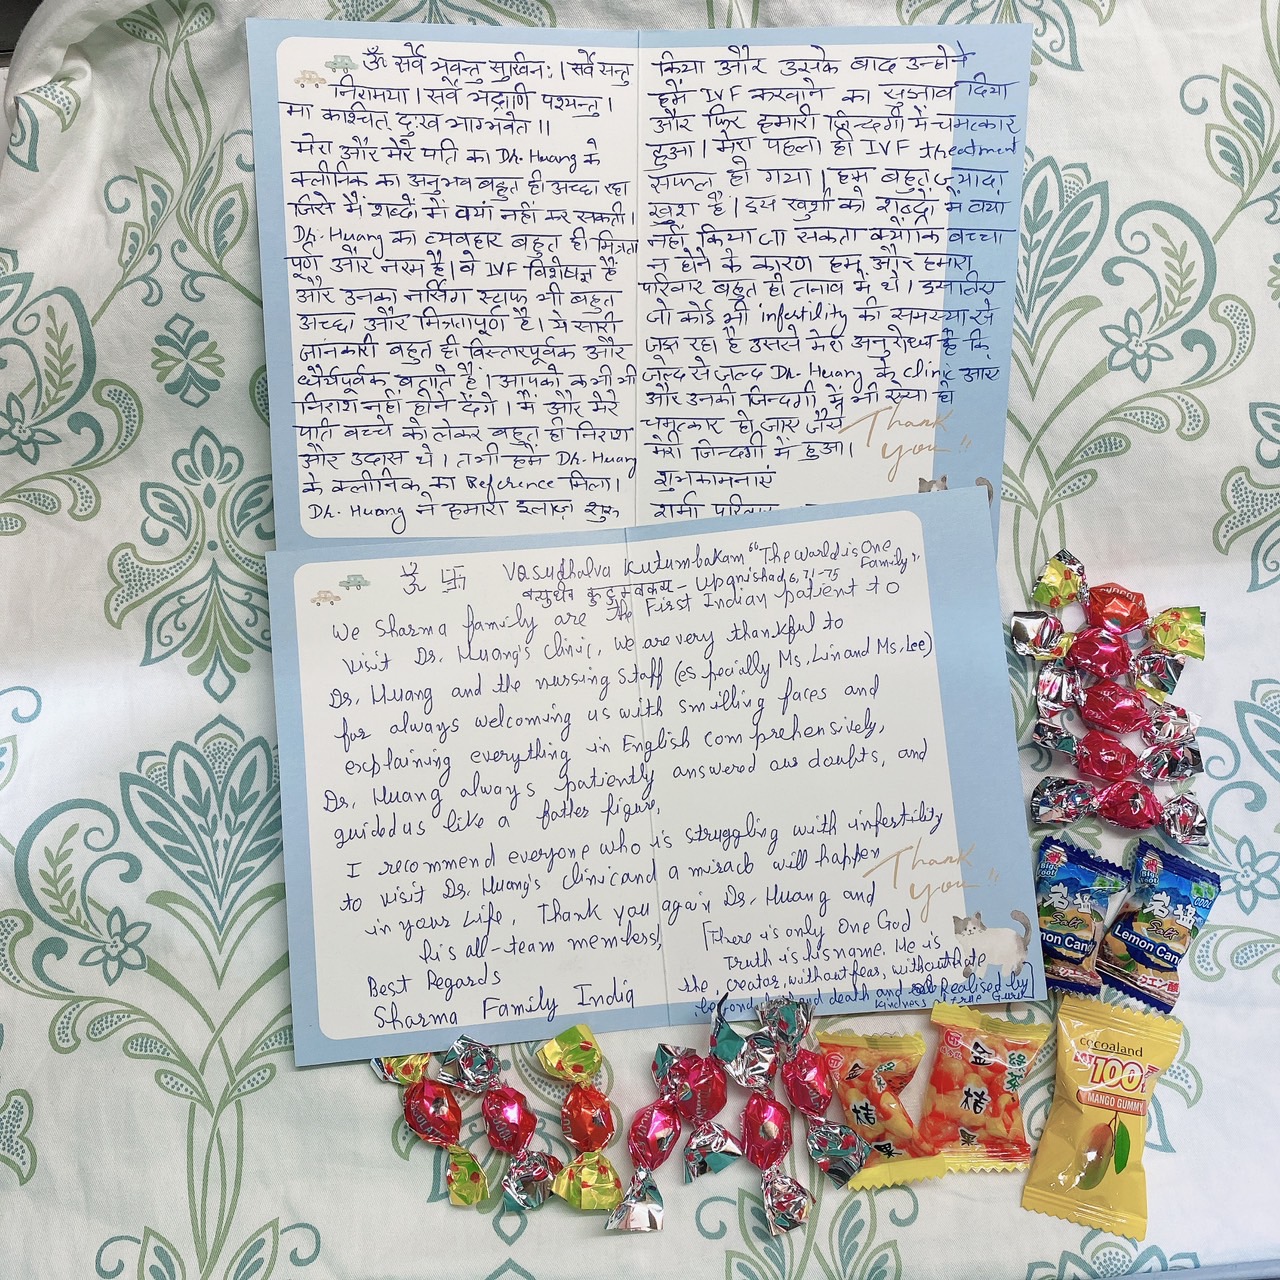 ॐ सर्वे भवन्तु सुखिनः। सर्वे सन्तु
निरामया। सर्वे भद्राणि पश्यन्तु।
मा कश्चित् दुःख भाग्भवेत॥
मेरा और मेरे पति का Dr. Huang के
क्लीनिक का अनुभव बहुत ही अच्छा रहा
जिसे मैं शब्दों में बयां नहीं कर सकती।
Dr. Huang का व्यवहार बहुत ही मित्रता
पूर्ण और नरम है। वे IVF विशेषज्ञ हैं
और उनका नर्सिंग स्टाफ भी बहुत
अच्छा और मित्रतापूर्ण है। ये सारी
जानकारी बहुत ही विस्तारपूर्वक और
धैर्यपूर्वक बताते हैं। आपको कभी भी
निराश नहीं होने देंगे। मैं और मेरे
पति बच्चे को लेकर बहुत ही निराश
और उदास थे। तभी हमें Dr. Huang
के क्लीनिक का Reference मिला।
Dr. Huang ने हमारा इलाज़ शुरू
किया और उसके बाद उन्होंने
हमें IVF करवाने का सुझाव दिया
और फिर हमारी ज़िन्दगी में चमत्कार
हुआ। मेरा पहला ही IVF treatment
सफल हो गया। हम बहुत ज़्यादा
खुश हैं। इस खुशी को शब्दों में बयां
नहीं किया जा सकता क्योंकि बच्चा
न होने के कारण हम और हमारा
परिवार बहुत ही तनाव में थे। इसलिए
जो कोई भी infertility की समस्या से
जूझ रहा है उससे मेरा अनुरोध है कि
जल्द से जल्द Dr. Huang के clinic आए
और उनकी जिन्दगी में भी ऐसा ही
चमत्कार हो जाए जैसे
मेरी जिन्दगी में हुआ।
शुभकामनाएं
शर्मा परिवार
Thank
you"
ॐ 卐 Vasudhaiva Kutumbakam "The world is One
Family"
वसुधैव कुटुम्बकम - Upanishad 6, 71-75
We Sharma family are the First Indian patient to
visit Dr. Huang's clinic, we are very thankful to
Dr. Huang and the nursing staff (especially Ms. Lin and Ms. Lee)
for always welcoming us with smilling faces and
explaining everything in English comprehensively,
Dr. Huang always patiently answered our doubts, and
guided us like a father figure,
I recommend everyone who is struggling with infertility
to visit Dr. Huang's clinic and a miracle will happen
in your life. Thank you again Dr. Huang and
his all-team members,
Best Regards
Sharma Family India
[There is only One God
Truth is his name. He is
the, creator, without fear, without hate
beyond and death and Realised by
kindness of true Guru]
Thank
you"
Big
Foot
岩塩
Salt
Lemon Candy
クエン酸
Big
Foot
岩塩
COOL
Salt
Lemon Candy
クエン酸
金桔
果
金桔
果
cocoaland
100
MANGO GUMMY